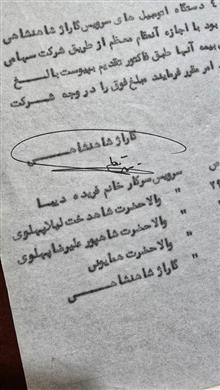 دستگاه اتومبیل های سرویس گاراژ شاهنشاهی
بود با اجازه آنمقام معظم از طریق شرکت سهامی
بیمه آنها طبق فاکتور تقدیم بپیوست بالغ
امر مقرر فرمایند مبلغ فوق را در وجه شرکت
گاراژ شاهنشاهــــی
سرویس سرکار خانم فریده دیبا
" والاحضرت شاهدخت لیلا پهلوی
" والاحضرت شاهپور علیرضا پهلوی
" والاحضرت همایونی
" گاراژ شاهنشاهــــی